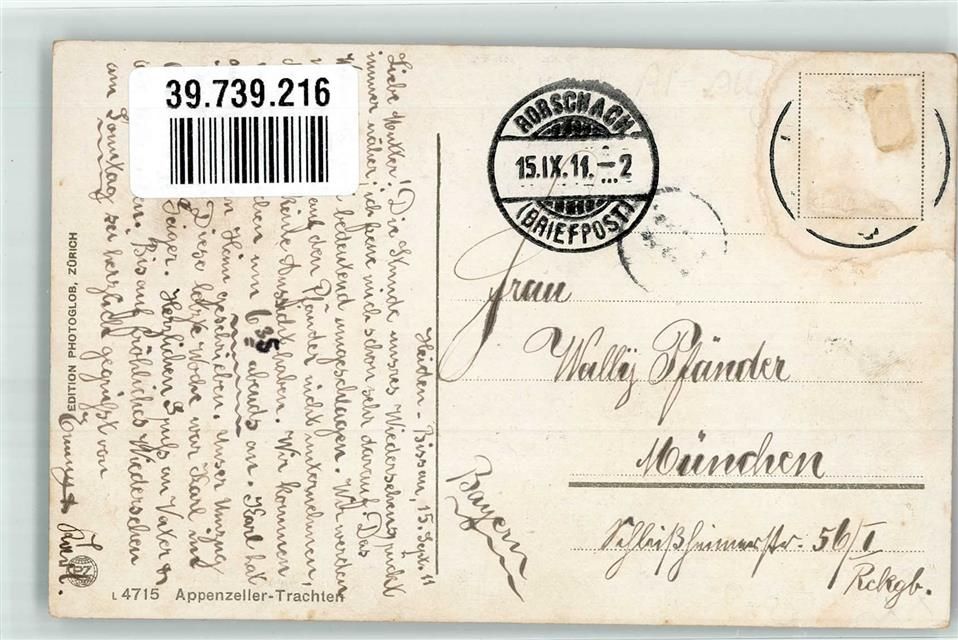 39.739.216
Heiden-Bissau, 15. Sept. 11
Liebe Mutter! Die Stunde unsres Wiedersehens rückt
immer näher; ich freue mich schon sehr darauf. Das
bedeutend umgeschlagen. Wir werden
auf den Pfänder nicht unternehmen,
keine Aussicht haben. Wir kommen
um 6 35 abends an. Karl hat
Heim geschrieben. Unser Umzug
Diese letzte Woche war Karl in
Geiger. Herzlichen Gruß an Vater &
Bis auf fröhliches Wiedersehen
am Sonntag sei herzlich gegrüßt von
Emmy & Karl.
EDITION PHOTOGLOB, ZÜRICH
PZ
L 4715 Appenzeller-Trachten
RORSCHACH
15.IX.11.-2
(BRIEFPOST)
Frau
Wally Pfänder
München
Schleißheimerstr. 56/I
Rckgb.
Bayern